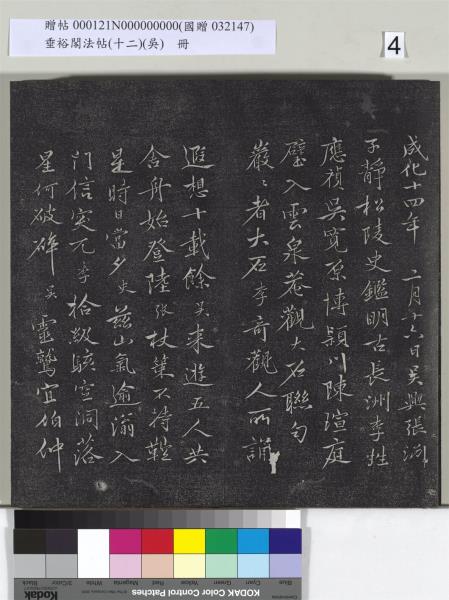 贈帖 000121N000000000(國贈 032147)
垂裕閣法帖(十二)(吳) 冊
4
成化十四年 二月十六日吳興張淵
子靜松陵史鑑明古長洲李甡
應禎吳寬原博潁川陳瑄庭
璧入雲泉菴觀大石聯句
巖〻者大石李奇觀人所誦
遐想十載餘吳来遊五人共
舍舟始登陸張杖藜不待鞚
是時日當夕史茲山氣逾滃入
门信突兀李拾級駭空洞落
星何破碎吳靈鷲宜伯仲
Blue Cyan Green Yellow Red Magenta White 3/Color Black
KODAK Color Control Patches